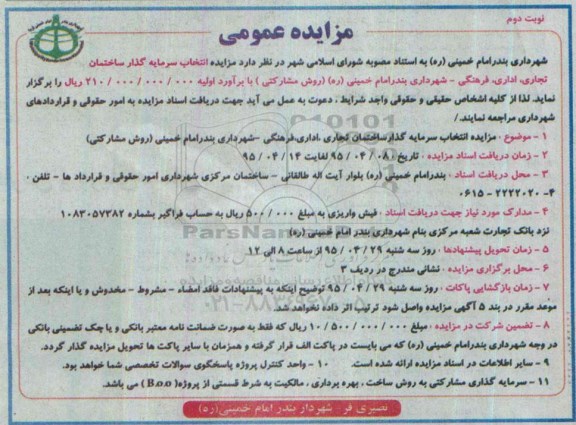 نوبت دوم
مزایده عمومی
شهرداری بندرامام خمینی (ره) به استناد مصوبه شورای اسلامی شهر در نظر دارد مزایده انتخاب سرمایه گذار ساختمان
تجاری، اداری، فرهنگی - شهرداری بندرامام خمینی (ره) (روش مشارکتی ) با برآورد اولیه ۲۱۰/۰۰۰/۰۰۰/۰۰۰ ریال را برگزار
نماید. لذا از کلیه اشخاص حقیقی و حقوقی واجد شرایط ، دعوت به عمل می آید جهت دریافت اسناد مزایده به امور حقوقی و قراردادهای
شهرداری مراجعه نمایند./
۱ - موضوع : مزایده انتخاب سرمایه گذارساختمان تجاری ،اداری،فرهنگی -شهرداری بندرامام خمینی (روش مشارکتی)
۲ - زمان دریافت اسناد مزایده : تاریخ ۹۵/۰۴/۰۸ لغایت ۹۵/۰۴/۱۴
۳ - محل دریافت اسناد : بندرامام خمینی (ره) بلوار آیت اله طالقانی - ساختمان مرکزی شهرداری امور حقوقی و قرارداد ها - تلفن ۰
۴- ۲۲۲۲۰۲۰ - ۰۶۱۵
۴ - مدارک مورد نیاز جهت دریافت اسناد : فیش واریزی به مبلغ ۵۰۰/۰۰۰ ریال به حساب فراگیر بشماره ۱۰۸۳۰۵۷۳۸۲
نزد بانک تجارت شعبه مرکزی بنام شهرداری بندر امام خمینی (ره)
۵ - زمان تحویل پیشنهادها : روز سه شنبه ۹۵/۰۴/۲۹ از ساعت ۸ الی ۱۲
۶ - محل برگزاری مزایده : نشانی مندرج در ردیف ۳
۷ - زمان بازگشایی پاکات : روز سه شنبه ۹۵/۰۴/۲۹ توضیح اینکه به پیشنهادات فاقد امضاء - مشروط - مخدوش و یا اینکه بعد از
موعد مقرر در بند ۵ آگهی مزایده واصل شود ترتیب اثر داده نخواهد شد.
۸ - تضمین شرکت در مزایده : مبلغ ۱۰/۵۰۰/۰۰۰/۰۰۰ ریال که فقط به صورت ضمانت نامه معتبر بانکی و یا چک تضمینی بانکی
در وجه شهرداری بندرامام خمینی (ره) که می بایست در پاکت الف قرار گرفته و همزمان با سایر پاکت ها تحویل مزایده گذار گردد.
۹ - سایر اطلاعات در اسناد مزایده ارائه شده است. ۱۰ - واحد کنترل پروژه پاسخگوی سوالات تخصصی شما خواهد بود.
۱۱ - سرمایه گذاری مشارکتی به روش ساخت ، بهره برداری ، مالکیت به شرط قسمتی از پروژه( B.o.o ) می باشد.
نصیری فر - شهردار بندر امام خمینی(ره)
ParsNamad
۰۲۱-۸۸۳۴۹۶۷۰-۵